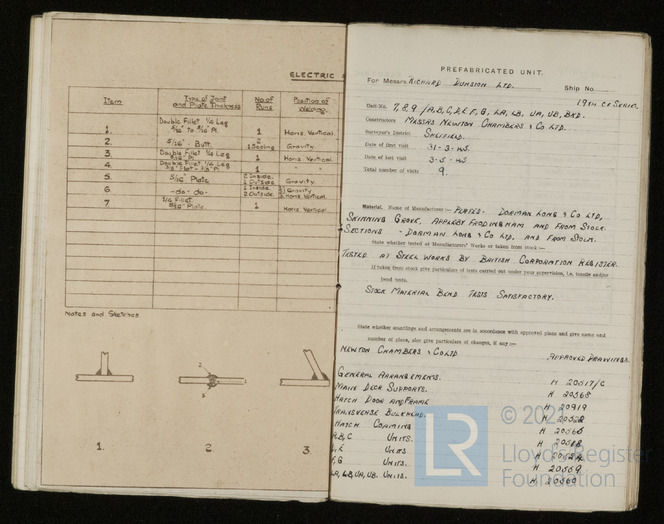 ELECTRIC
Item
Type of Joint and Plate Thickness
No of Runs
Position of Welding
1.
Double Fillet 1/4 Leg
1
Horiz. Vertical.
2.
5/16" Butt.
1 Sealing
Gravity.
3.
Double Fillet 1/4 Leg
1
Horiz Vertical
4.
Double Fillet 1/4 Leg
1
"
5.
5/16" Plate
2 Inside.
Outside.
Gravity.
6.
-do-do-
1 Inside.
2 Outside
Gravity
Horiz Vertical
7.
1/4 Fillet
5/16" Plate.
1
Horiz Vertical
Notes and Sketches
2
1
1.
2.
3.
PREFABRICATED UNIT.
For Messrs. RICHARD DUNSTON LTD. Ship No.
19TH CX SERIES.
Unit No. 7, 8, 9. /A, B, C, D, E, F, G, LA, LB, UA, UB, BKD.
Constructors MESSRS NEWTON CHAMBERS & CO LTD.
Surveyor's District SHEFFIELD.
Date of first visit 31-3-45.
Date of last visit 3-5-45.
Total number of visits 9.
Material. Name of Manufacturer :- PLATES - DORMAN LONG & CO LTD,
SKINNING GROVE, APPLEBY FRODINGHAM AND FROM STOCK.
SECTIONS - DORMAN LONG & CO LTD, AND FROM STOCK.
State whether tested at Manufacturers' Works or taken from stock :-
TESTED AT STEEL WORKS BY BRITISH CORPORATION REGISTER.
If taken from stock give particulars of tests carried out under your supervision, i.e. tensile and/or
bend tests.
STOCK MATERIAL BEND TESTS SATISFACTORY.
State whether scantlings and arrangements are in accordance with approved plans and give name and
number of plans, also give particulars of changes, if any :-
NEWTON CHAMBERS & CO LTD APPROVED DRAWINGS.
GENERAL ARRANGEMENTS. H 20517/C
MAIN DECK SUPPORTS. H 20565
HATCH DOOR AND FRAME H 20919
TRANSVERSE BULKHEAD. H
HATCH COAMING H
A, B, C UNITS. H
UNITS H
F, G UNITS. H 20569
LA, LB, UA, UB. UNITS. H
© 202
LR
Lloyd's Register
Foundation